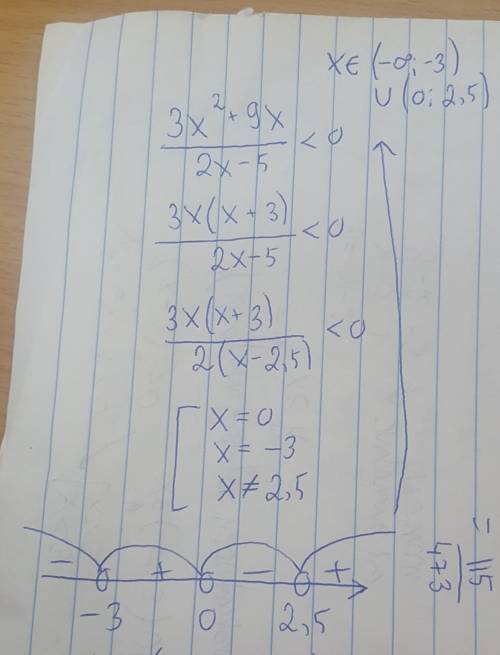 x∈ (-∞; -3)
∪ (0; 2,5)
3x² + 9x
2x - 5
< 0
3x(x + 3)
2x - 5
< 0
3x(x + 3)
2(x - 2,5)
< 0
x = 0
x = -3
x ≠ 2,5
- + - +
-3 0 2,5
= 115
473